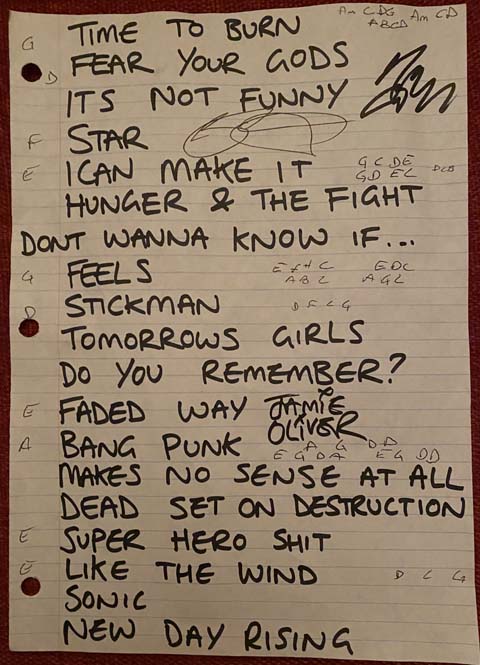 Am C DG Am CD
ABCD
G TIME TO BURN
D FEAR YOUR GODS
ITS NOT FUNNY
F STAR
E I CAN MAKE IT G C DE
GD EC DCB
HUNGER & THE FIGHT
DONT WANNA KNOW IF...
G FEELS E F# C EDC
ABC AGC
D STICKMAN D F C G
TOMORROWS GIRLS
DO YOU REMEMBER?
E FADED WAY JAMIE
OLIVER
A BANG PUNK A G DD
E G DA EG DD
MAKES NO SENSE AT ALL
DEAD SET ON DESTRUCTION
E SUPER HERO SHIT
E LIKE THE WIND D C G
SONIC
NEW DAY RISING